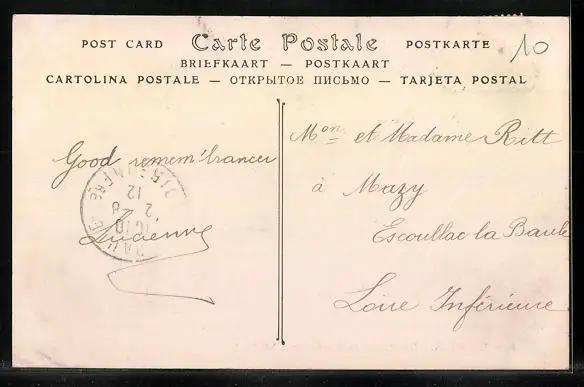 POST CARD Carte Postale POSTKARTE
BRIEFKAART — POSTKAART
CARTOLINA POSTALE — ОТКРЫТОЕ ПИСЬМО — TARJETA POSTAL
10
Good remem'brances
Lucienne
Mon et Madame Ritt
à Mazy
Escoublac la Baule
Loire Inférieure